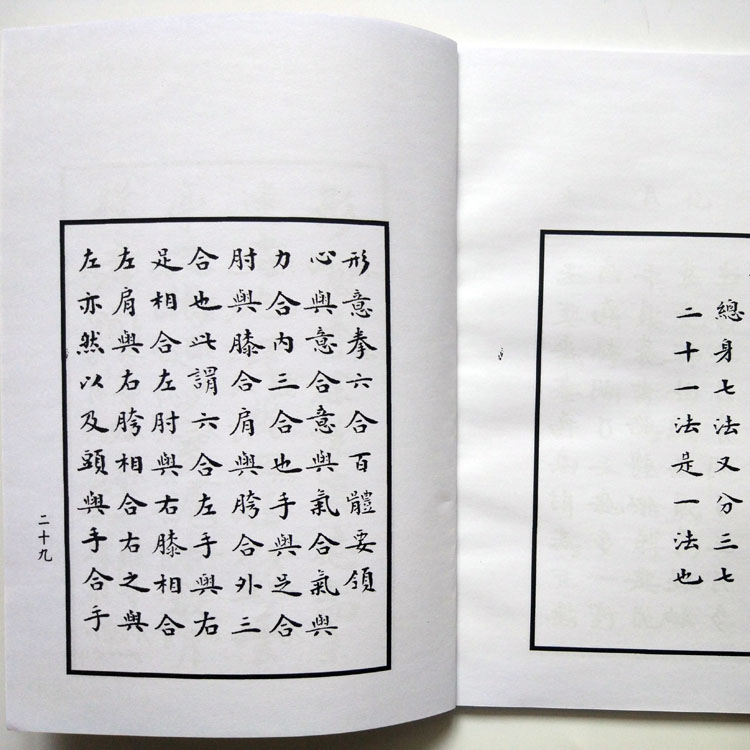 總身七法又分三七
二十一法是一法也
形意拳六合百體要領
心與意合意與氣合氣與
力合內三合也手與足合
肘與膝合肩與胯合外三
合也此謂六合左手與右
足相合左肘與右膝相合
左肩與右胯相合右之與
左亦然以及頭與手合手
二十九